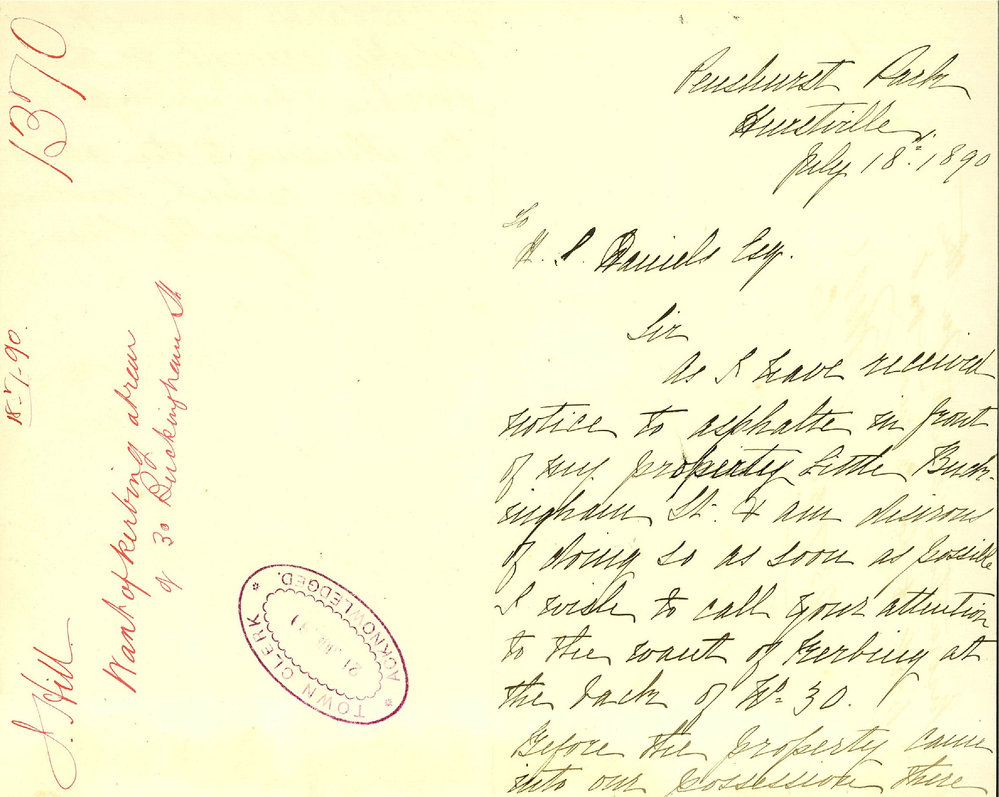 1370
18-7-90.
J. Hill
Want of kerbing at rear
of 30 Buckingham St
TOWN CLERK
21 JUL
ACKNOWLEDGED.
Penshurst Park
Hurstville
July 18th 1890
To
H. S. Daniels Esq.
Sir
As I have received
notice to asphalte in front
of my property Little Buck-
ingham St. & am desirous
of doing so as soon as possible
I wish to call your attention
to the want of Kerbing at
the back of No. 30.
Before the property came
into our possession there